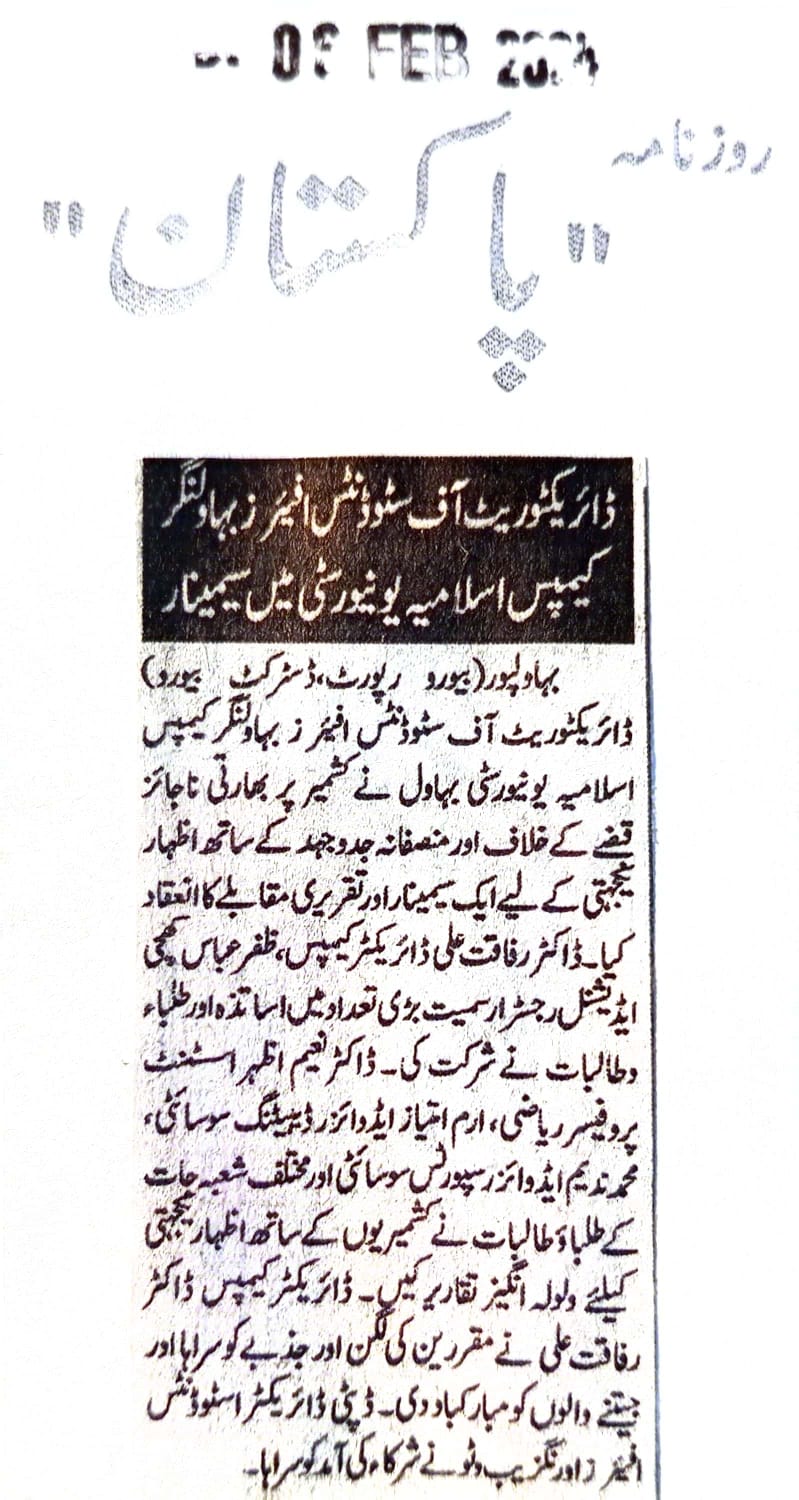 FEB
روزنامہ
"پاکستان"
ڈائریکٹوریٹ آف سٹوڈنٹس افیئرز بہاولنگر
کیمپس اسلامیہ یونیورسٹی میں سیمینار
بہاولپور (بیورو رپورٹ، ڈسٹرکٹ بیورو)
ڈائریکٹوریٹ آف سٹوڈنٹس افیئرز بہاولنگر کیمپس
اسلامیہ یونیورسٹی بہاول نے کشمیر پر بھارتی ناجائز
قبضے کے خلاف اور منصفانہ جدوجہد کے ساتھ اظہار
یکجہتی کے لیے ایک سیمینار اور تقریری مقابلے کا انعقاد
کیا۔ ڈاکٹر رفاقت علی ڈائریکٹر کیمپس، ظفر عباس کھچی
ایڈیشنل رجسٹرار سمیت بڑی تعداد میں اساتذہ اور طلباء
وطالبات نے شرکت کی۔ ڈاکٹر نعیم اظہر اسسٹنٹ
پروفیسر ریاضی، ارم امتیاز ایڈوائزر ڈیبیٹنگ سوسائٹی،
محمد ندیم ایڈوائزر سپورٹس سوسائٹی اور مختلف شعبہ جات
کے طلباؤ طالبات نے کشمیریوں کے ساتھ اظہار یکجہتی
کیلئے ولولہ انگیز تقاریر کیں۔ ڈائریکٹر کیمپس ڈاکٹر
رفاقت علی نے مقررین کی لگن اور جذبے کو سراہا اور
جیتنے والوں کو مبارکباد دی۔ ڈپٹی ڈائریکٹر اسٹوڈنٹس
افیئرز اورنگزیب وٹو نے شرکاء کی آمد کو سراہا۔